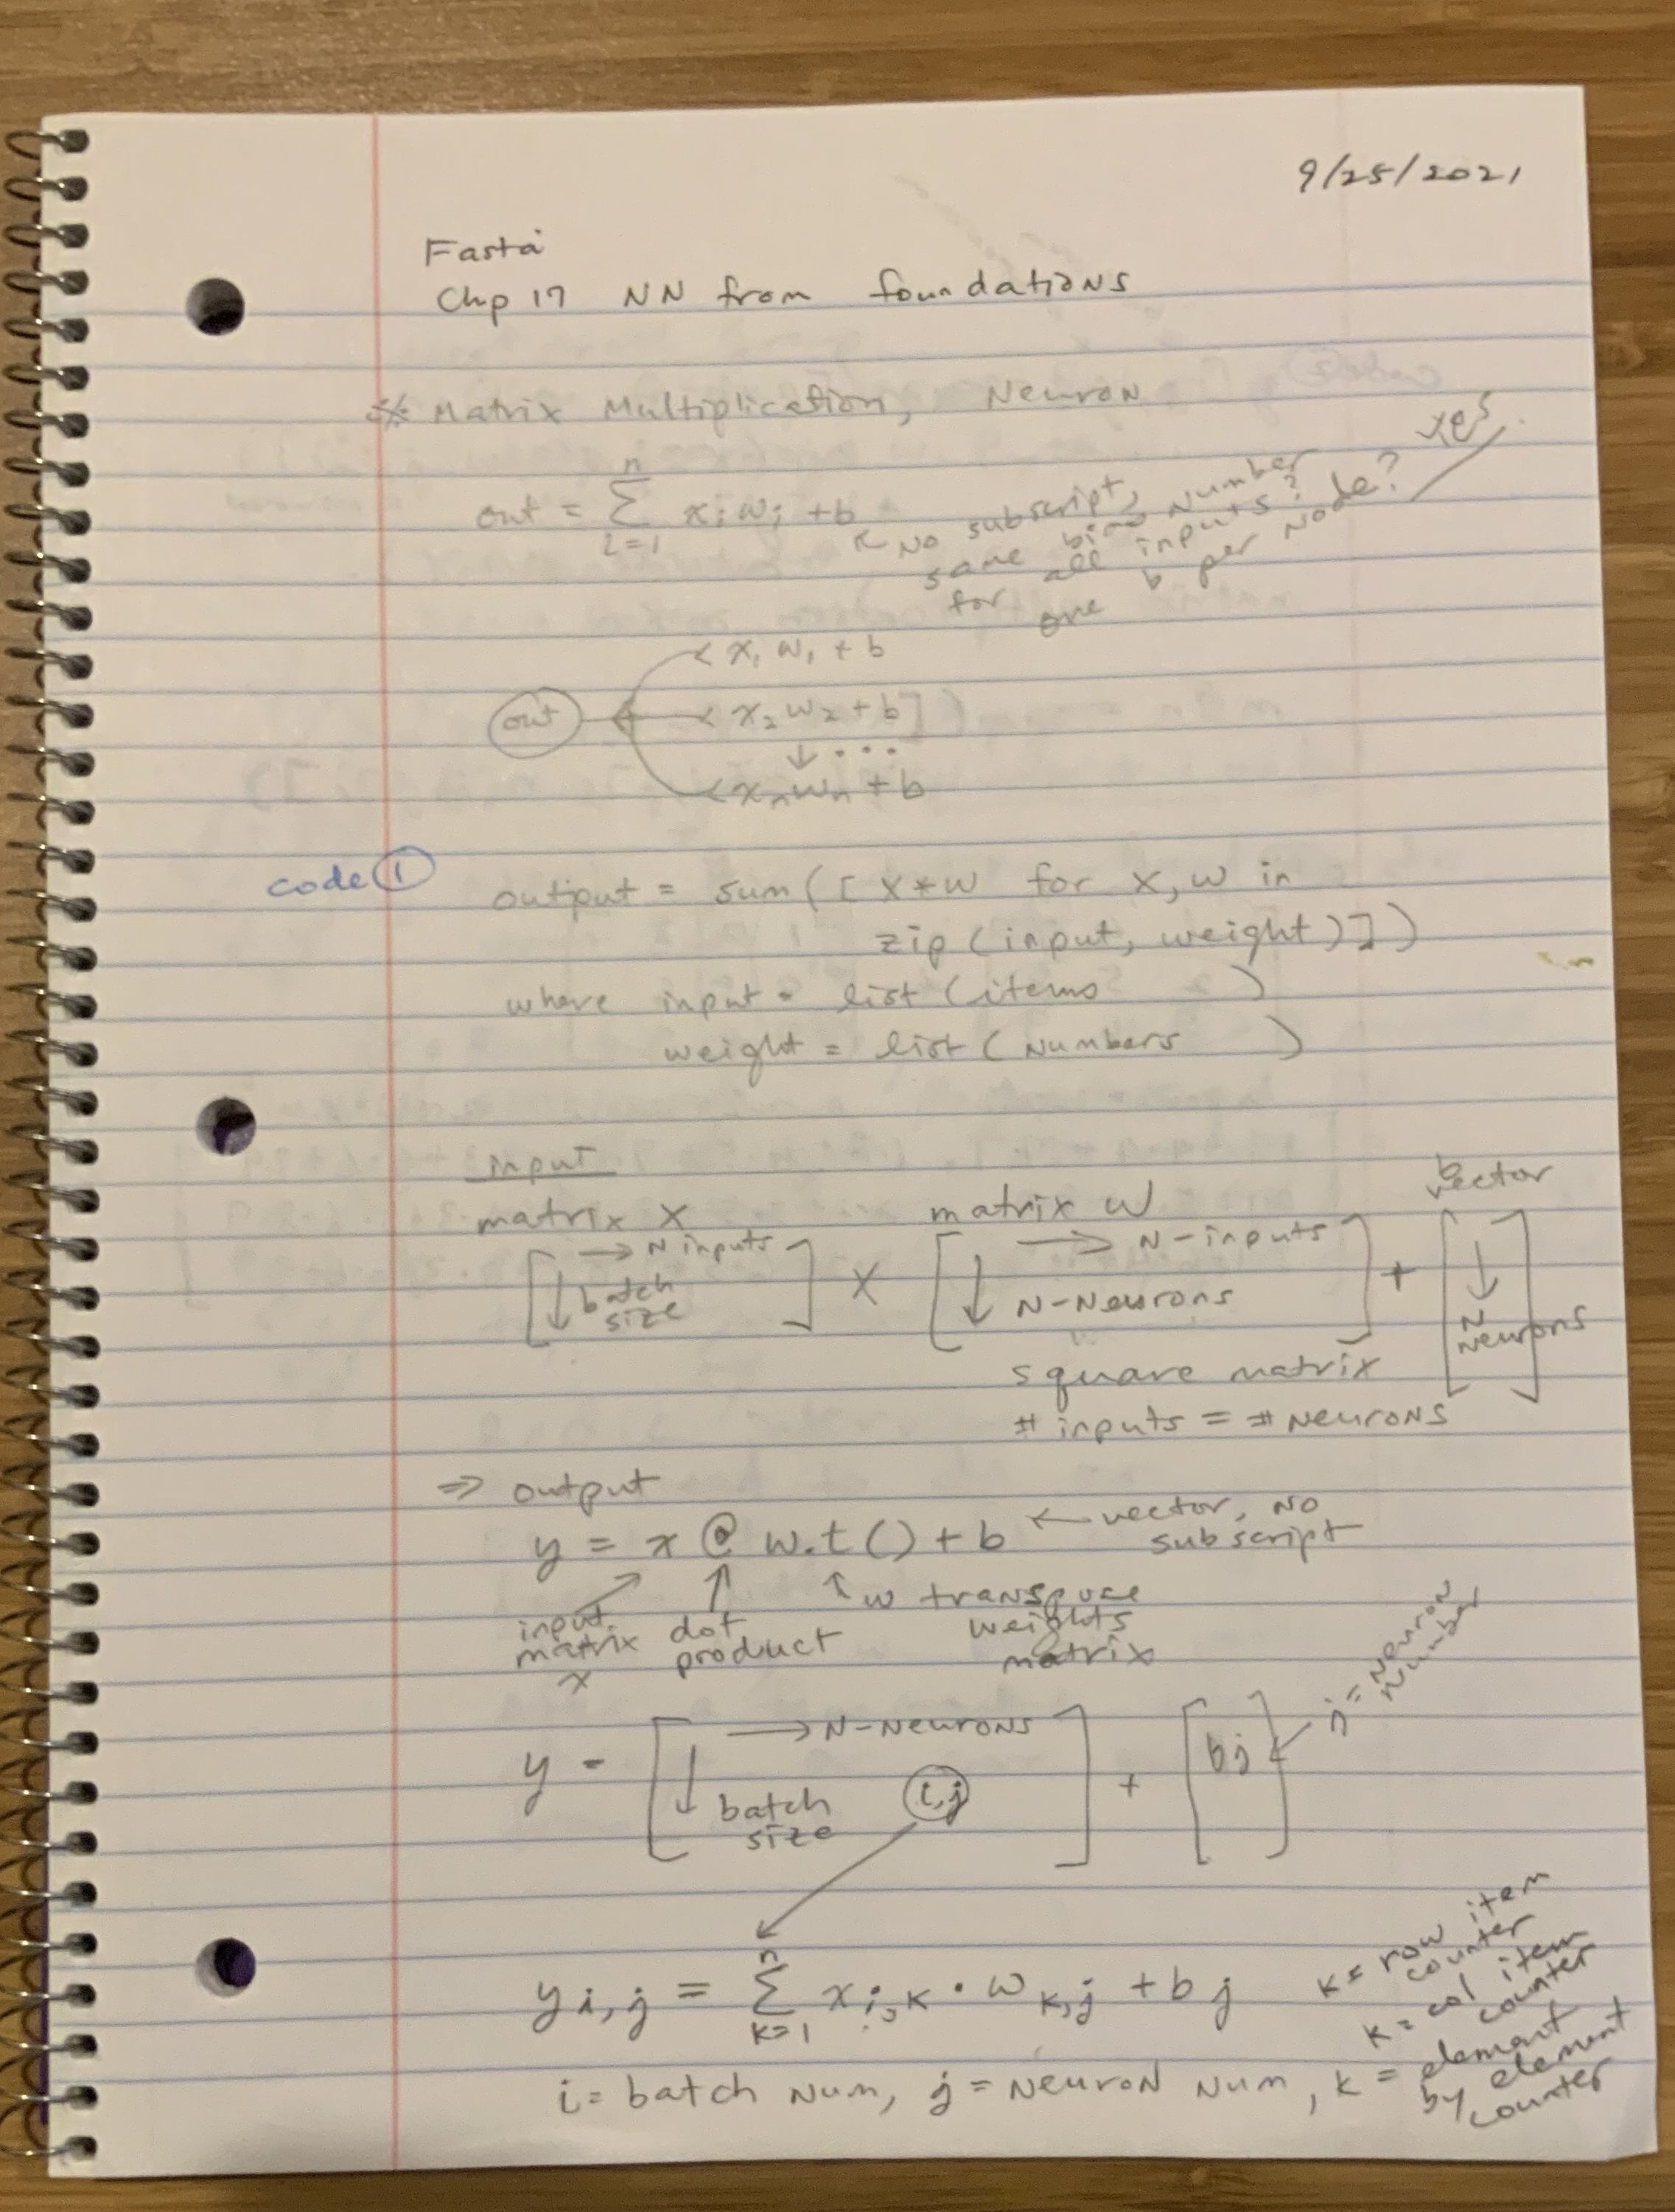 9/25/2021
Fastai
Chp 17 NN from foundations
※ Matrix Multiplication, Neuron
out = n ∑ i=1 xᵢ wᵢ + b
← No subscript,
same bias number
for all inputs?
one b per node? yes
out
x₁ w₁ + b
x₂ w₂ + b]
↓ ...
xₙ wₙ + b
code ①
output = sum([x*w for x,w in
zip(input, weight)])
where input = list(items )
weight = list(numbers )
input
matrix X
→ N inputs
↓ batch
size
X
matrix W
→ N-inputs
↓ N-Neurons
+
b
vector
↓
N
Neurons
square matrix
# inputs = # Neurons
⇒ output
y = x @ w.t() + b ← vector, no
subscript
input
matrix
x
dot
product
w transpose
weights
matrix
y = [ → N-Neurons
↓ batch
size
i,j
] + [bj]
j = Neuron
Number
y i,j = n ∑ k=1 x i,k · w k,j + b j
k = row item
counter
k = col item
counter
i = batch num, j = Neuron Num, k = element
by element
counter